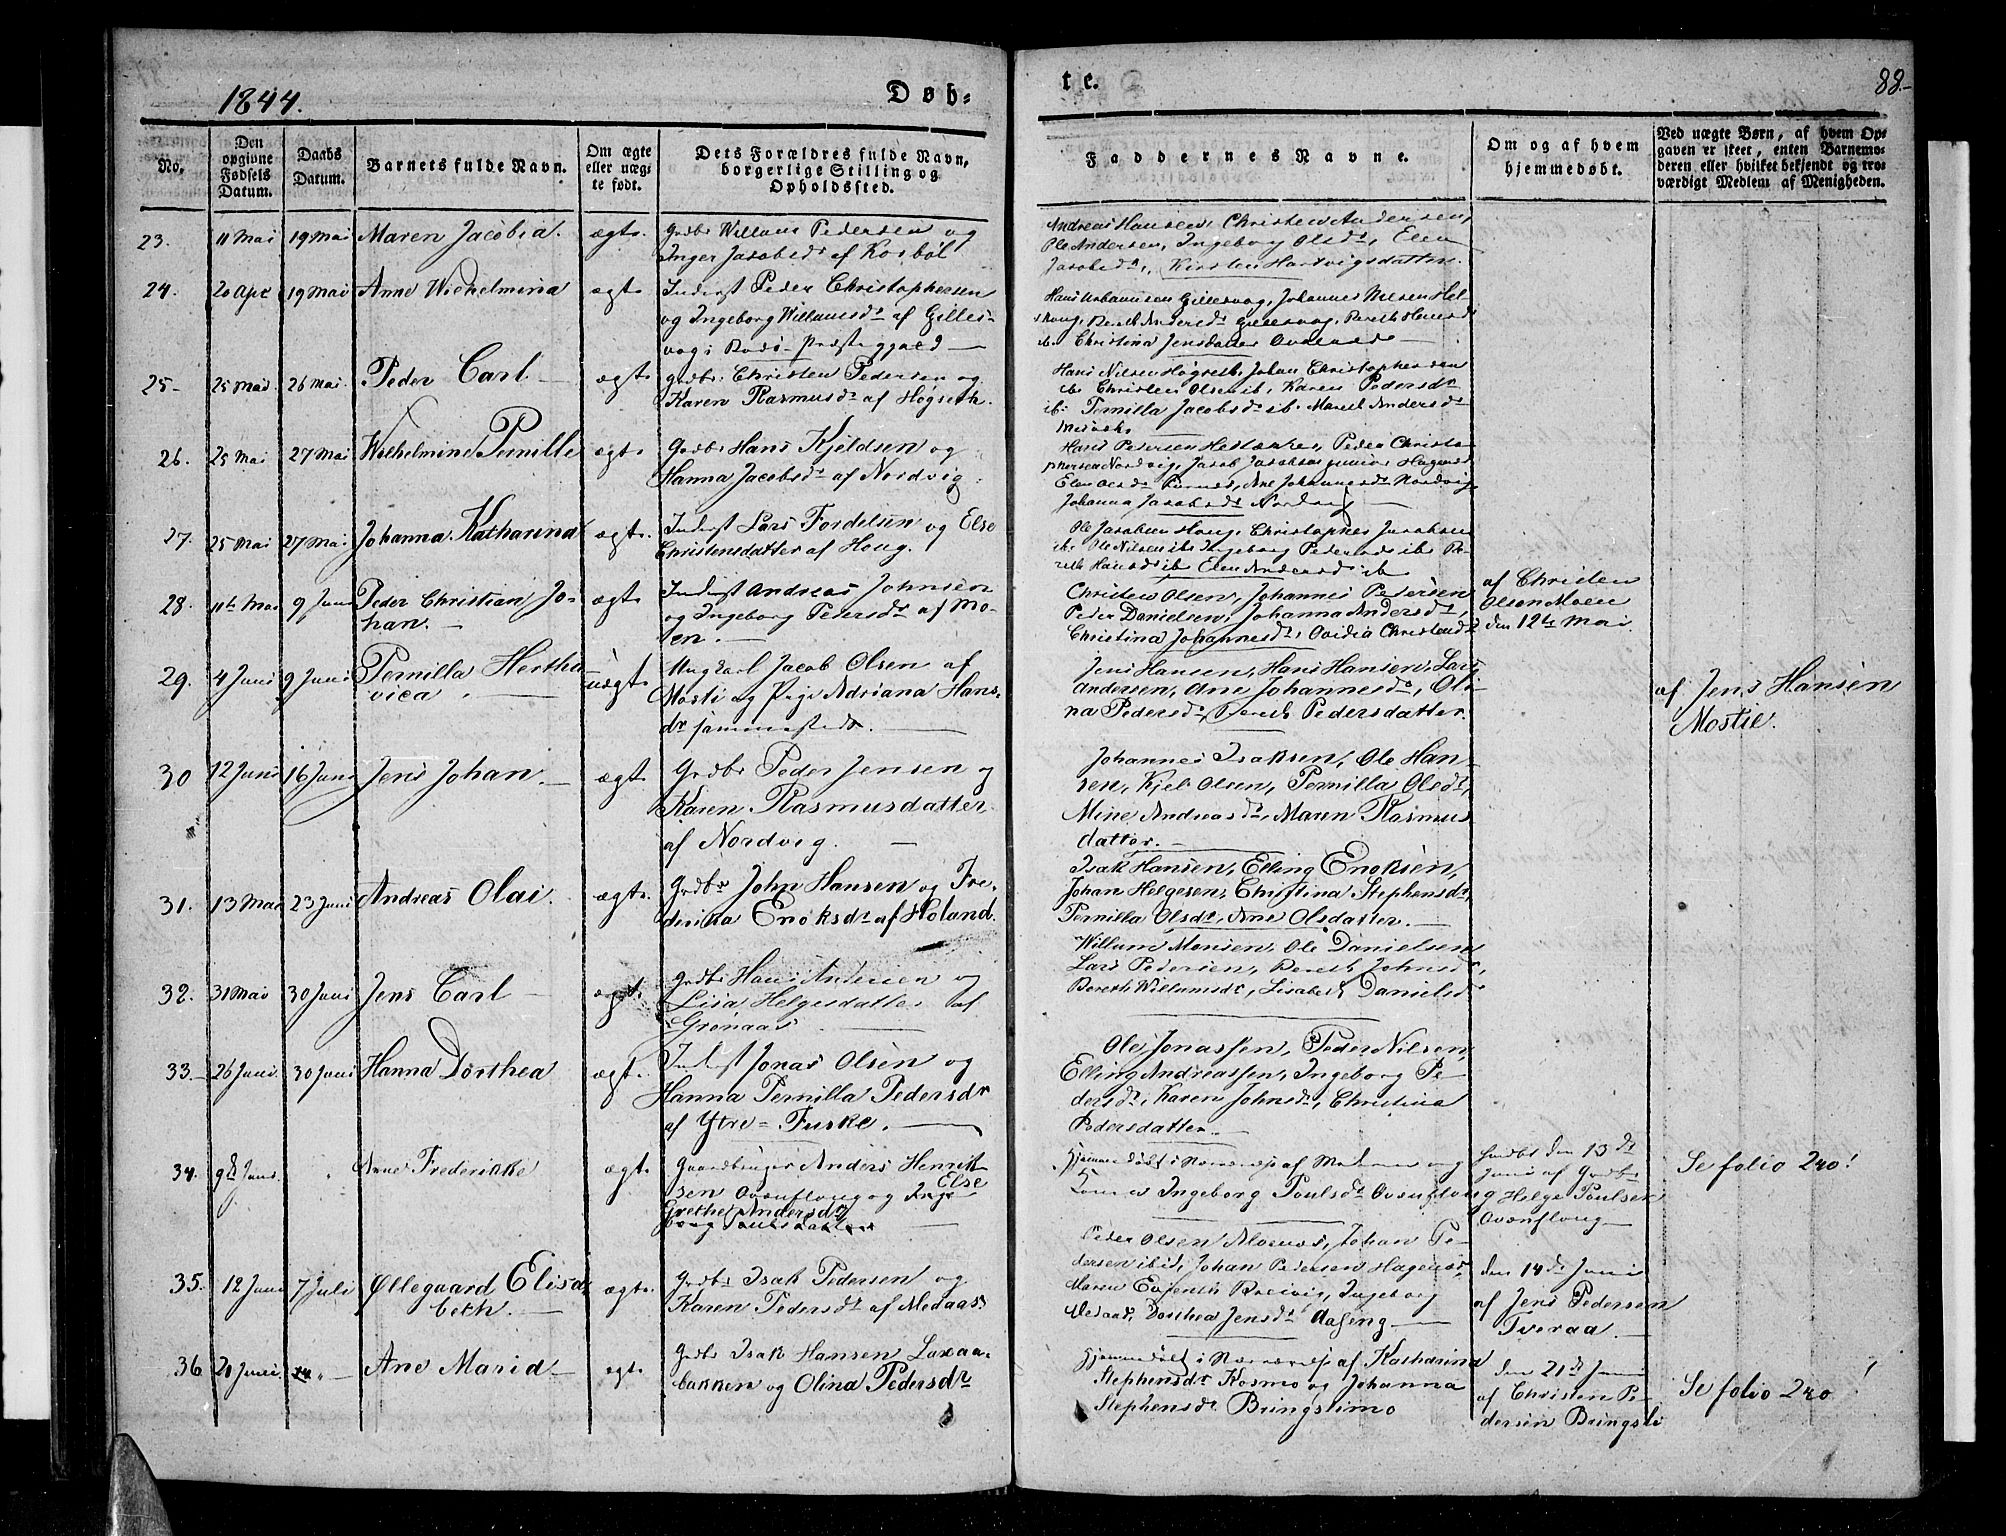 1844.
Døb-
te.
88.
No.
Den opgivne Fødsels Datum.
Daabs Datum.
Barnets fulde Navn.
Om ægte eller uægte født.
Dets Forældres fulde Navn, borgerlige Stilling og Opholdssted.
Faddernes Navne.
Om og af hvem hjemmedøbt.
Ved uægte Børn, af hvem Opgaven er skeet, enten Barnemoderen eller hvilket bekjendt og troværdigt Medlem af Menigheden.
23. 11 Mai 19 Mai Maren Jacobia. ægte
Grdbr Willum Pedersen og
Inger Jacobsdr af Kosbøl
Andreas Hansen, Christen Andersen,
Ole Andersen, Ingeborg Olsdr, Elen
Jacobsdr, Kirsten Hartvigsdatter.
24. 20 Apr 19 Mai Anne Wilhelmina ægte
Inderst Peder Christophersen
og Ingeborg Willumsdr af Gilles-
vog i Bodø Præstegjæld
Johannes Nilsen
Christina Jensdatter
25 25 Mai 26 Mai Peder Carl ægte
Grdbr. Christen Pedersen og
Karen Rasmusdr af Høgseth.
Hans Nilsen Høgseth, Johan Christophersen
ib. Christen Olsen ib. Karen Pedersdr
ib. Pernilla Jacobsdr ib. Marit Andersdr
26. 25 Mai 27 Mai Wilhelmine Pernille ægte
Grdbr Hans Kjeldsen og
Hanna Jacobsdr af Nordvig.
Hans Pedersen Peder Christo-
phersen Nordvig, Jacob Jacobsen junior
Ane Johannesdr Nordvig
Johanna Jacobsdr Nordvig
27. 25 Mai 27 Mai Johanna Katharina ægte.
Inderst Lars Fordelsen og Else
Christensdatter af Houg.
Ole Jacobsen Houg, Christopher Jacobsen
ib. Ole Nilsen ib. Ingeborg Pedersdr ib. Be-
reth Hansdr ib Elen Andersdr ib
28. 11te Mai 9 Juni Peder Christian Jo-
han. ægte
Inderst Andreas Johnsen
og Ingeborg Pedersdr af Mo-
en.
Christen Olsen, Johannes Pedersen
Peder Danielsen, Johanna Andersdr,
Christina Johannesdr, Ovidia Christensdr
af Christen
Olsen Moen
den 12te Mai.
29. 4 Juni 9 Juni Pernilla Hertha-
vica uægte
Ungkarl Jacob Olsen af
Mosti og Pige Adriana Hans-
dr sammesteds.
Jens Hansen, Hans Hansen, Lars
Andersen, Ane Johannesdr, Oli-
na Pedersdr Bereth Pedersdatter.
af Jens Hansen
Mostie.
30 12 Juni 16 Juni Jens Johan ægte
Grdbr Peder Jensen og
Karen Rasmusdatter
af Nordvig.
Johannes Isaksen, Ole Han-
sen, Kjel Olsen, Pernilla Olsdr,
Mine Andreasdr, Maren Rasmus
datter.
31. 13 Mai 23 Juni Andreas Olai. ægte.
Grdbr John Hansen og Fre-
derika Enoksdr af Høland.
Isak Hansen, Elling Enoksen,
Johan Helgesen, Christina Stephensdr,
Pernilla Olsdr, Ane Olsdatter.
32. 31 Mai 30 Juni Jens Carl ægte.
Grdbr Hans Andersen og
Lisa Helgesdatter af
Grønaas
Willum Monsen, Ole Danielsen
Lars Pedersen, Bereth Johnsdr,
Bereth Willumsdr, Lisabet Danielsdr
33. 26 Juni 30 Juni Hanna Dorthea ægte.
Inderst Jonas Olsen og
Hanna Pernilla Pedersdr
af Ytre-Fuske.
Ole Jonassen, Peder Nilsen,
Elling Andreassen, Ingeborg Pe-
dersdr, Karen Johnsdr, Christina
Pedersdatter.
34. 9de Juni " Anne Frederikke ægte
Gaardbruger Anders Henrik-
sen Ovenfloug og Inge- Else
Grethe Andersdr
borg Poulsdatter
Hjemmedøbt i Nærværelse af Moderen og
Ingeborg Poulsdr Ovenfloug
hmdbt den 13de
Juni af Grdbr
Helge Poulsen
Ovenfloug
Se folio 240!
35. 12 Juni 7 Juli Øllegaard Elisa-
beth. ægte.
Grdbr Isak Pedersen og
Karen Pedersdr af Medaas.
Peder Olsen Alvenes, Johan Pe-
dersen ibid, Johan Pedersen Hagenes,
Maren Ingeborg
Medaas, Dorthea Jensdr Aaseng
den 14de Juni
af Jens Pedersen
Tveraa.
36 20 Juni Ane Maria ægte
Grdbr Isak Hansen Laxaa-
bakken og Olina Pedersdr
Hjemmedøbt i Nærværelse af Katharina
Stephensdr Kosmo og Johanna
Stephensdr Bringslimo
den 21de Juni
af Christen Pe-
dersen Bringsli
Se folio 240!